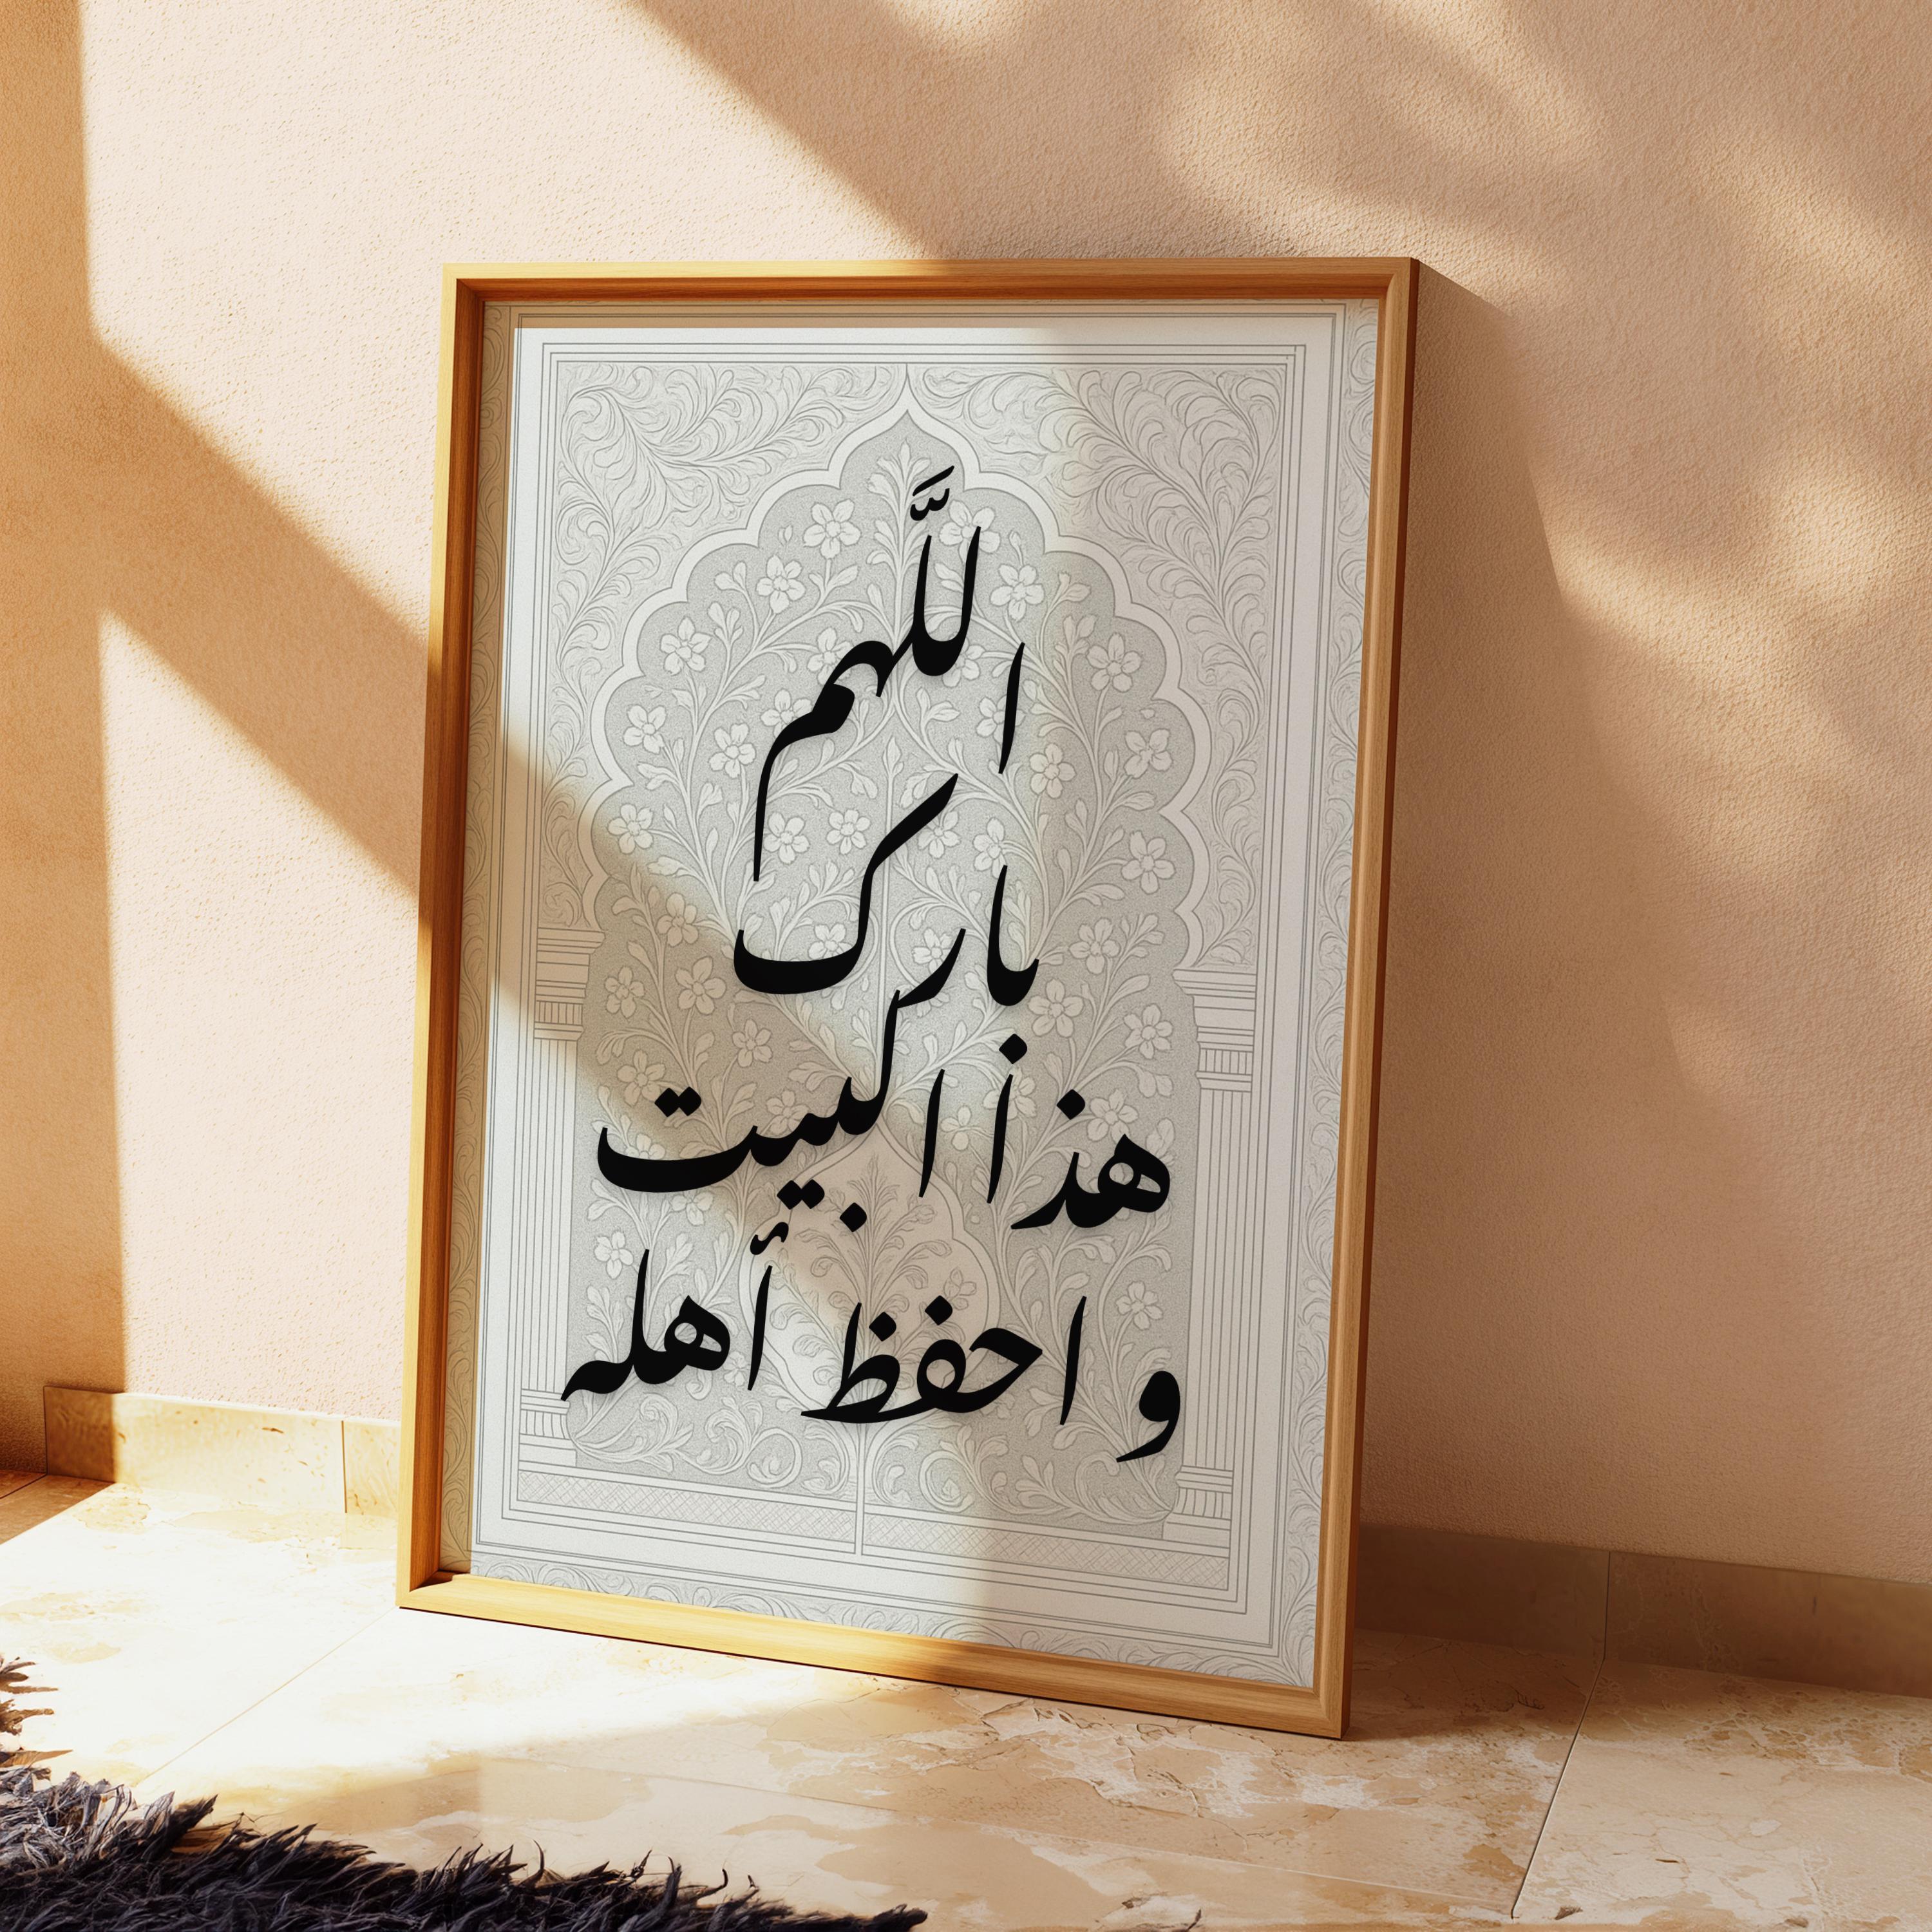 اللَّهم
بارك
هذا البيت
و احفظ أهله